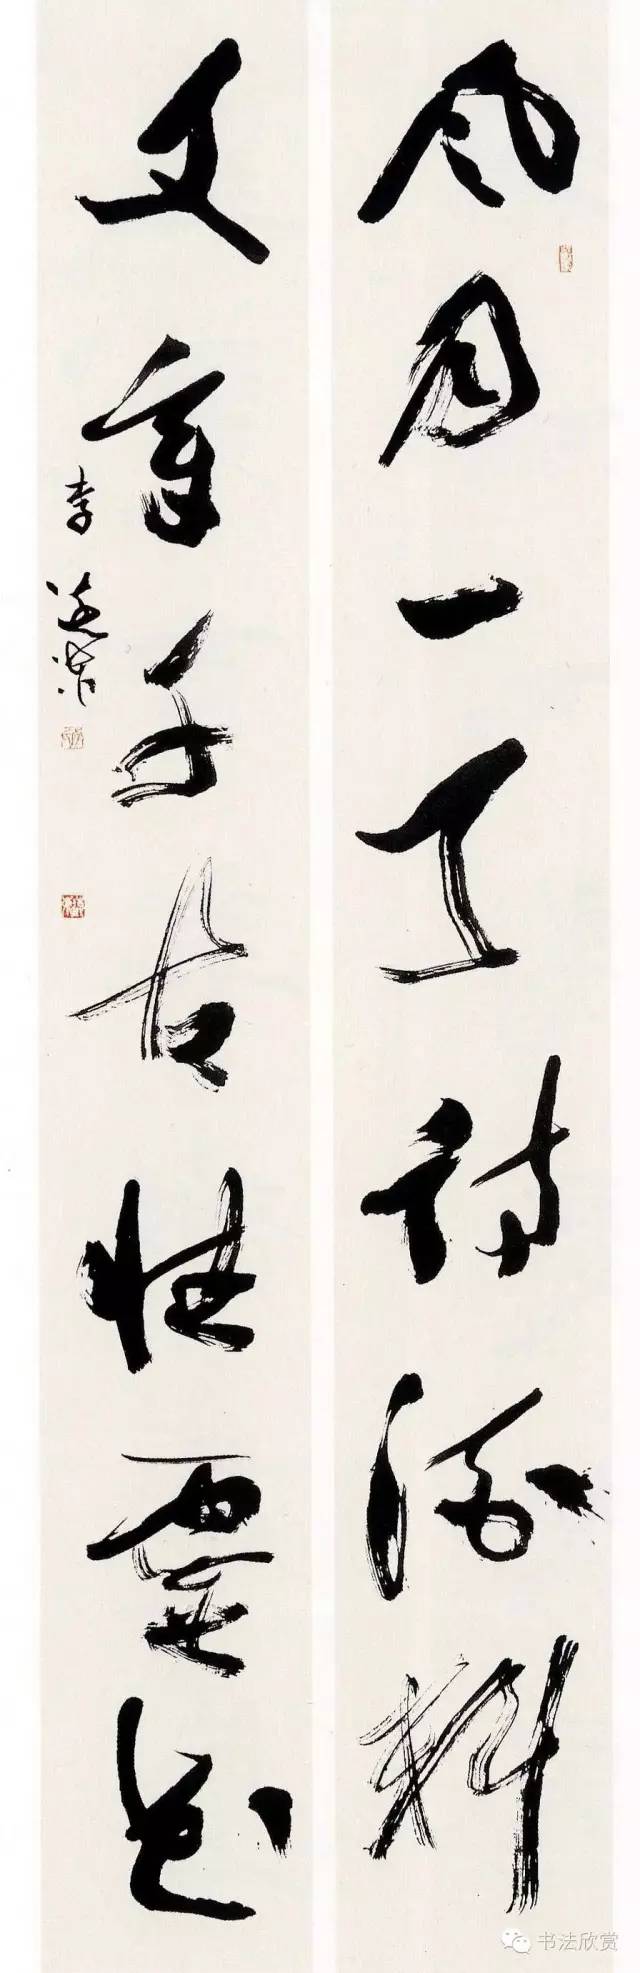 风月一天诗酒料
文章千古性灵花
李
书法欣赏